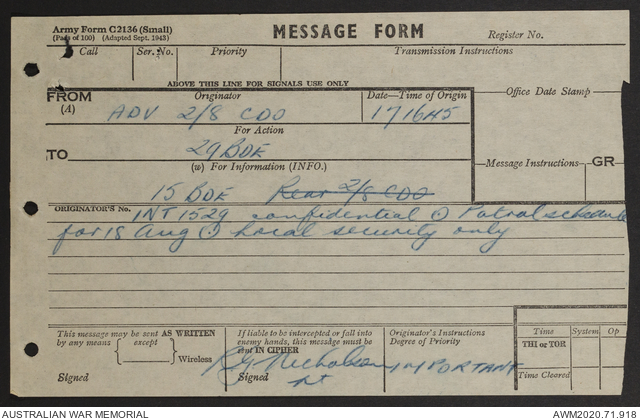 Army Form C2136 (Small)
(Pads of 100) (Adapted Sept. 1943)
MESSAGE FORM
Register No.
Call Ser. No. Priority Transmission Instructions
ABOVE THIS LINE FOR SIGNALS USE ONLY
FROM
(A)
Originator
Date—Time of Origin
Office Date Stamp
ADV 2/8 CDO
171645
For Action
TO
29 BDE
(w) For Information (INFO.)
Message Instructions
GR
15 BDE Rear 2/8 CDO
ORIGINATOR'S No.
INT 1529 confidential (.) Patrol schedule
for 18 Aug (.) Local security only
This message may be sent AS WRITTEN
by any means except
Wireless
Signed
If liable to be intercepted or fall into
enemy hands, this message must be
sent IN CIPHER
Signed
Nicholson
Lt
Originator's Instructions
Degree of Priority
IMPORTANT
Time System Op
THI or TOR
Time Cleared
AUSTRALIAN WAR MEMORIAL
AWM2020.71.918